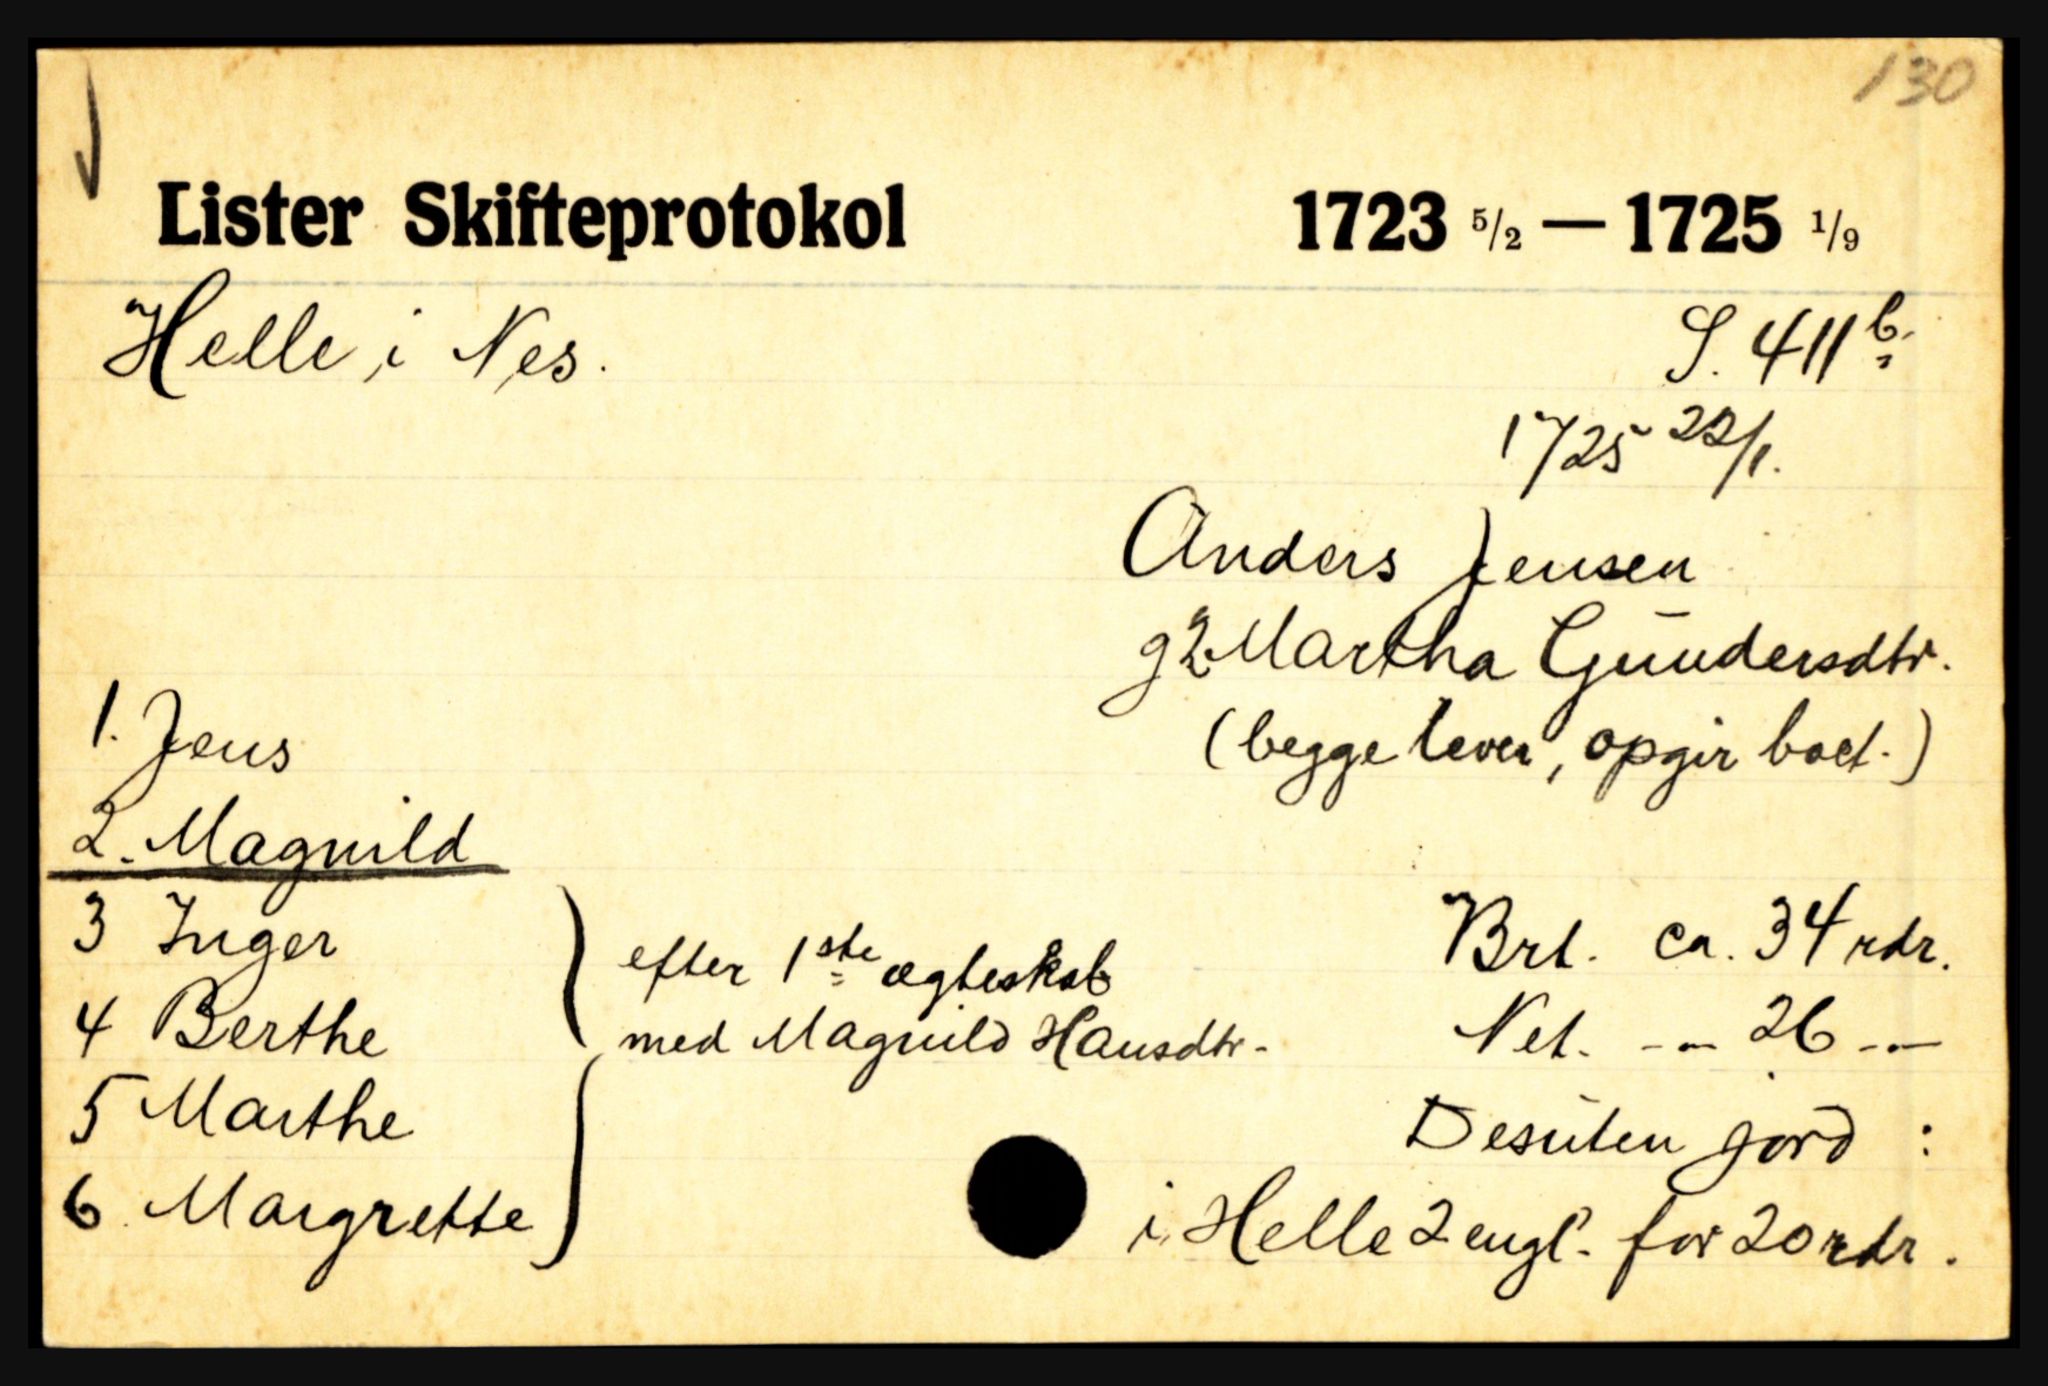 130
Lister Skifteprotokol 1723 5/2 — 1725 1/9
Helle i Nes. S. 411b.
1725 22/1.
Anders Jensen
g 2 Martha Gundersdtr.
(begge lever, opgir boet.)
1. Jens
2. Magnild
3 Inger
4 Berthe
5 Marthe
6. Margrette
efter 1ste ægteskab
med Magnild Hansdtr.
Brt. ca. 34 rdr.
Net. -„- 26 -„-
Desuten jord :
i Helle 2 engl. for 20 rdr.